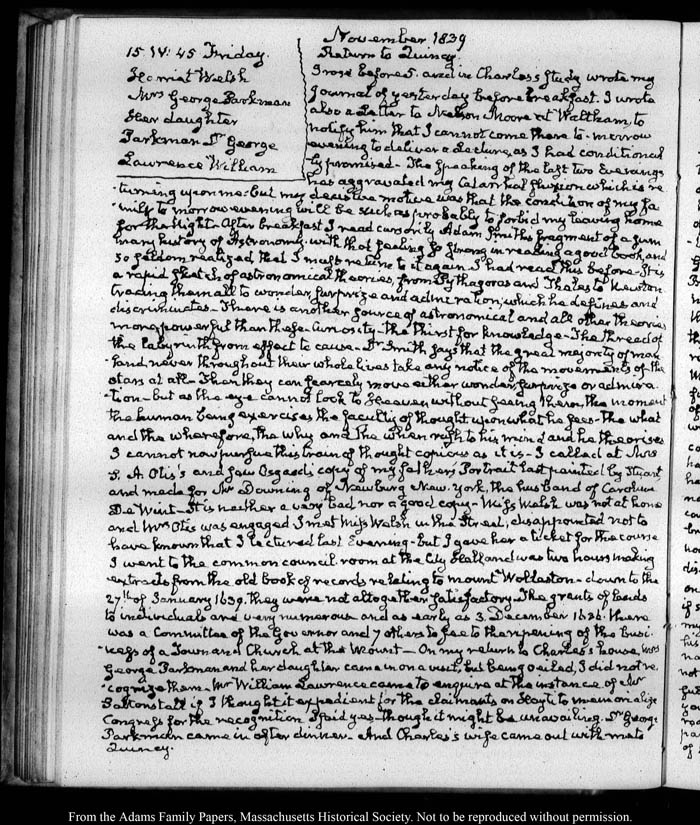 November 1839
15. IV: 45 Friday.
Harriet Welsh
Mrs George Parkman
Her daughter
Parkman Dr George
Lawrence William
Return to Quincy
I rose before 5. and in Charles's Study wrote my
journal of yesterday before breakfast. I wrote
also a Letter to Nelson Moore at Waltham, to
notify him that I cannot come there to-morrow
evening to deliver a Lecture, as I had conditional
ly promised- The speaking of the last two Evenings
has aggravated my Catarrhal fluxion which is re
-turning upon me: but my decisive motive was that the condition of my fa
-mily to morrow evening will be such as probably to forbid my leaving home
for the Night. After breakfast I read cursorily Adam Smith's fragment of a sum
-mary history of Astronomy, with that feeling so strong in reading a good book, and
so seldom realized that I must return to it again. I had read this before- It is
a rapid sketch of astronomical theories, from Pythagoras and Thales to Newton
tracing them all to wonder, surprize and admiration; which he defines and
discriminates- There is another source of astronomical and all other theories
more powerful than these- Curiosity- The thirst for knowledge- The thread of
the labyrinth from effect to cause- Dr Smith says that the great majority of man
-kind, never throughout their whole lives take any notice of the movements of the
stars at all- Then they can scarcely move either wonder, surprize or admira
-tion- but as the eye cannot look to Heaven without seeing them, the moment
the human being exercises the faculty of thought upon what he sees- The what
and the wherefore, the why and the when rush to his mind and he theorises
I cannot now pursue this train of thought copious as it is- I called at Mrs
S. A. Otis's and saw Osgood's copy of my father's Portrait last painted by Stuart,
and made for Mr Downing of Newburg New-York, the husband of Caroline
De Wint- It is neither a very bad nor a good copy- Miss Welsh was not at home
and Mrs Otis was engaged I met Miss Welsh in the Street, disappointed not to
have known that I lectured last Evening- but I gave her a ticket for the course
I went to the common council room at the City Hall and was two hours making
extracts from the old book of records relating to mount Wollaston- down to the
27th of January 1639. they were not altogether satisfactory- The grants of lands
to individuals are very numerous and as early as 3. December 1636. there
was a Committee of the Governor and 7 others to see to the ripening of the busi
-ness of a Town and Church at the Mount- On my return to Charles's house, Mrs
George Parkman and her daughter came in on a visit, but being veiled, I did not re
-cognize them- Mr William Lawrence came to enquire at the instance of Mr
Saltonstall if I thought it expedient for the claimants on Hayti to memorialize
Congress for the recognition. I said yes- though it might be unavailing. Dr George
Parkman came in after dinner- And Charles's wife came out with me to
Quincy.
From the Adams Family Papers, Massachusetts Historical Society. Not to be reproduced without permission.